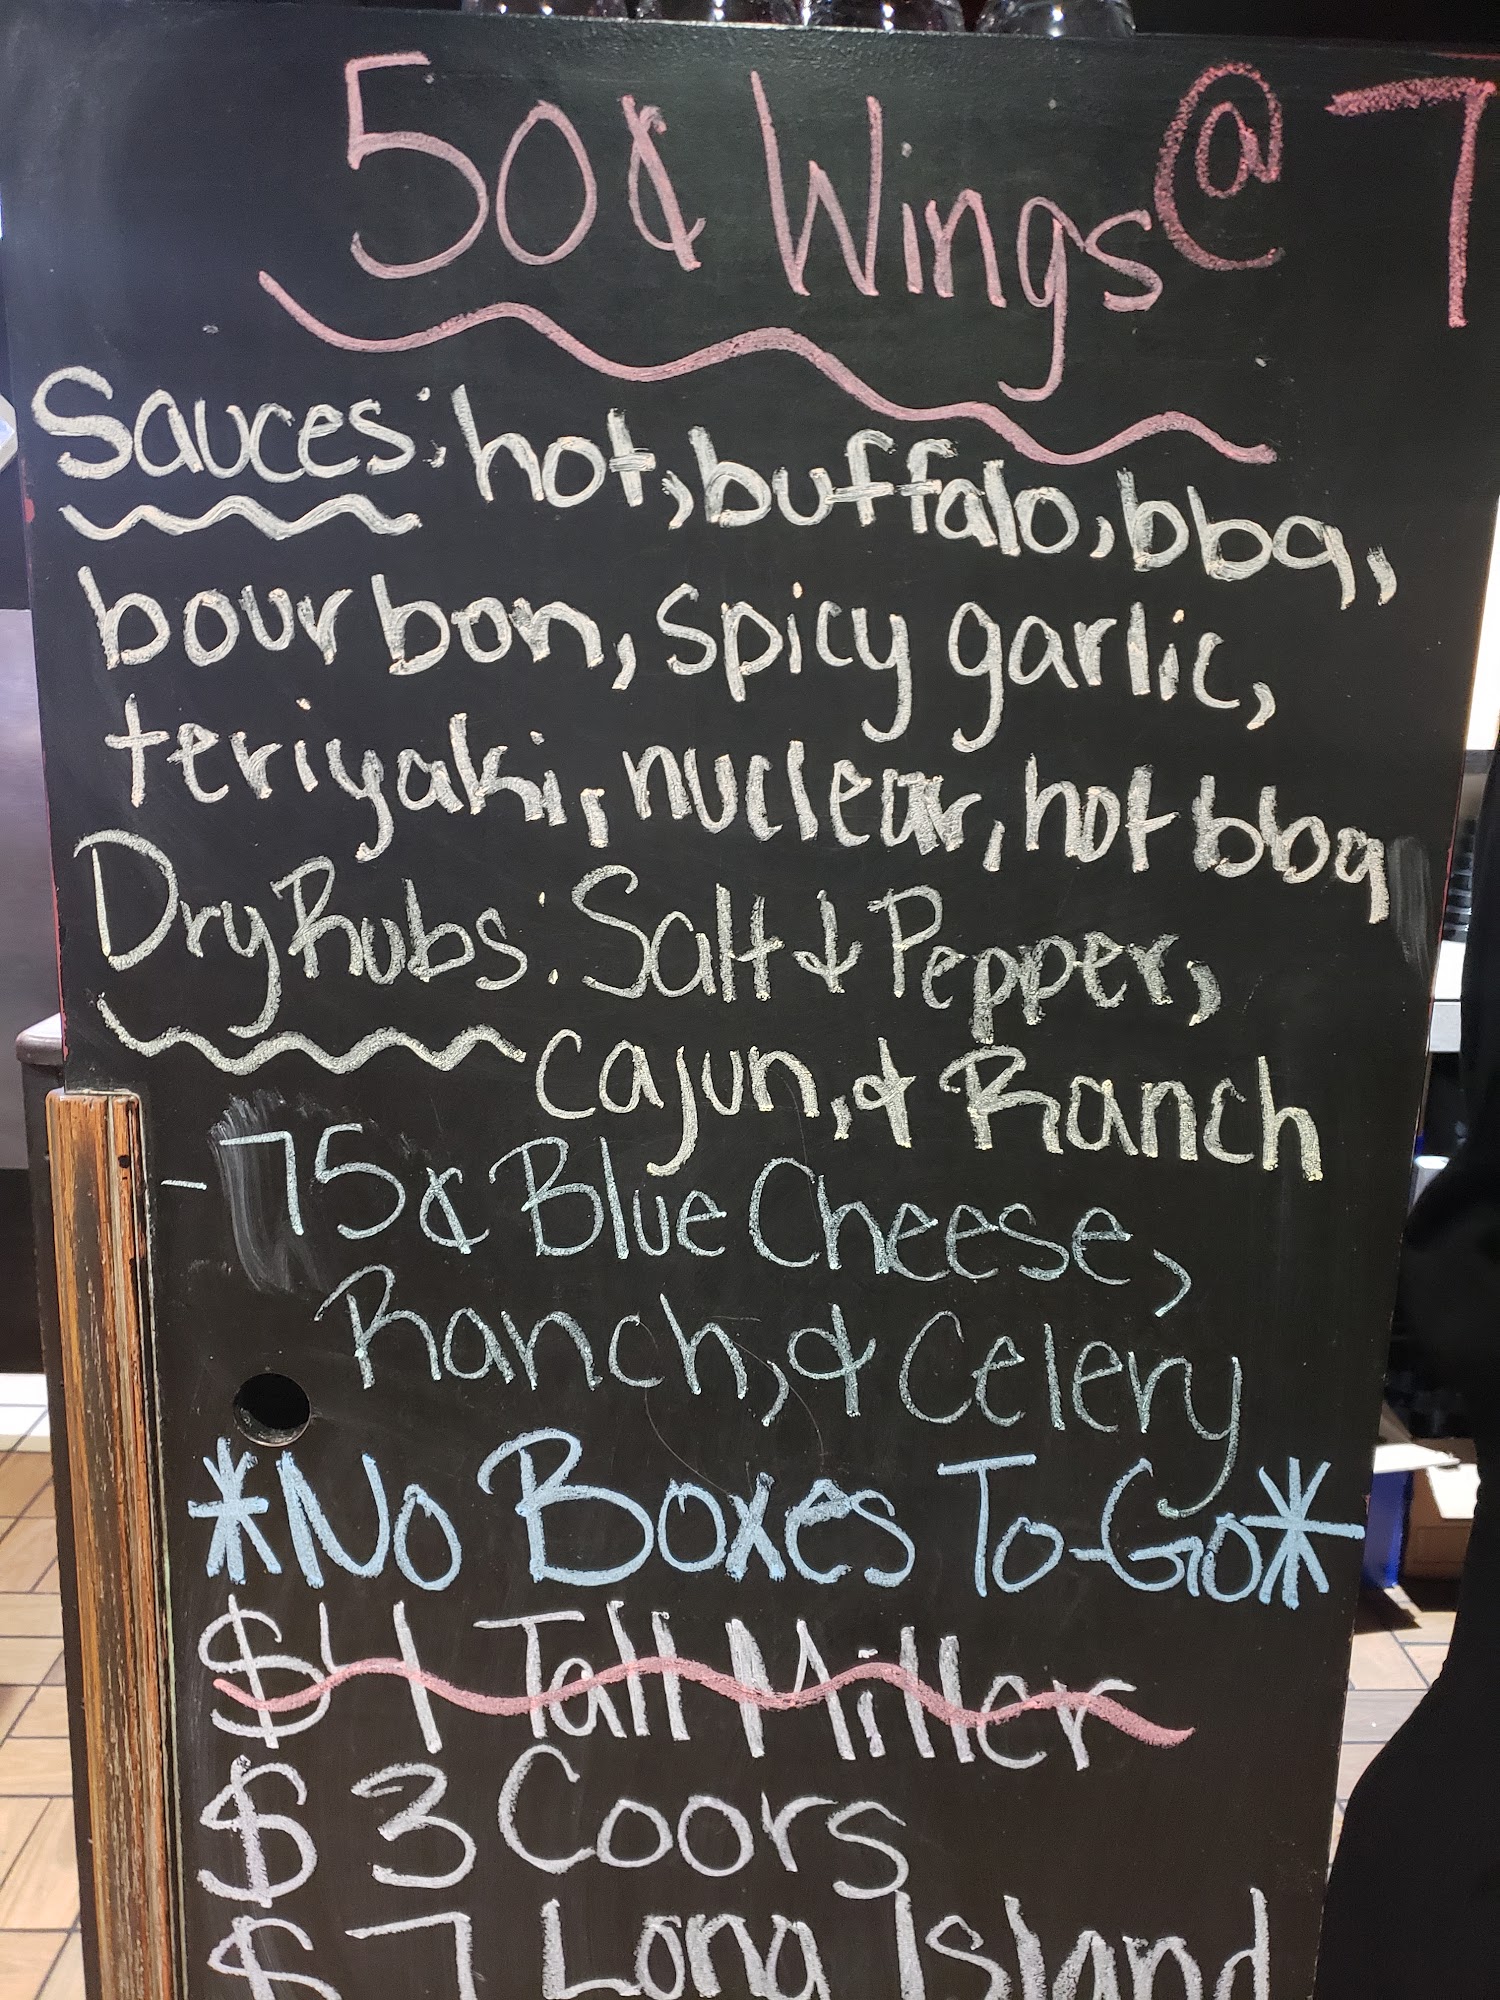 50¢ Wings @ 7
Sauces: hot, buffalo, bbq,
bourbon, spicy garlic,
teriyaki, nuclear, hot bbq
Dry Rubs: Salt & Pepper,
cajun, & Ranch
- 75¢ Blue Cheese,
Ranch, & Celery
*No Boxes To-Go*
$4 Tall Miller
$3 Coors
$7 Long Island